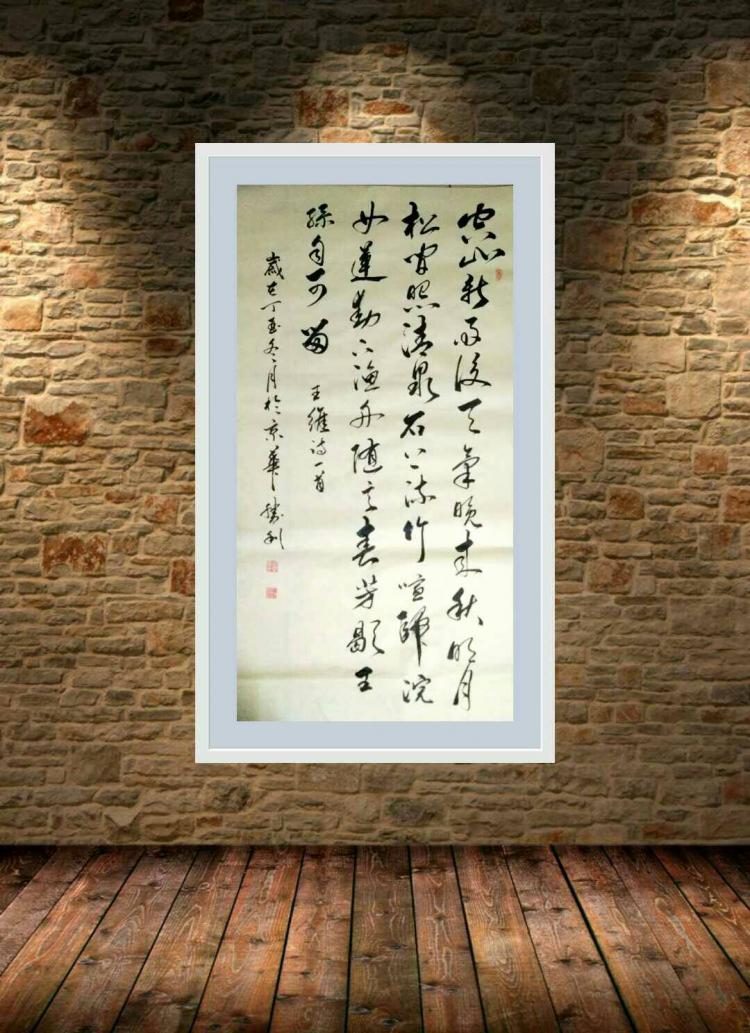 空山新雨後天氣晚来秋明月
松间照清泉石上流竹喧歸浣
女蓮動下渔舟随意春芳歇王
孫自可留 王維诗一首
歲在丁酉冬月於京華勝利